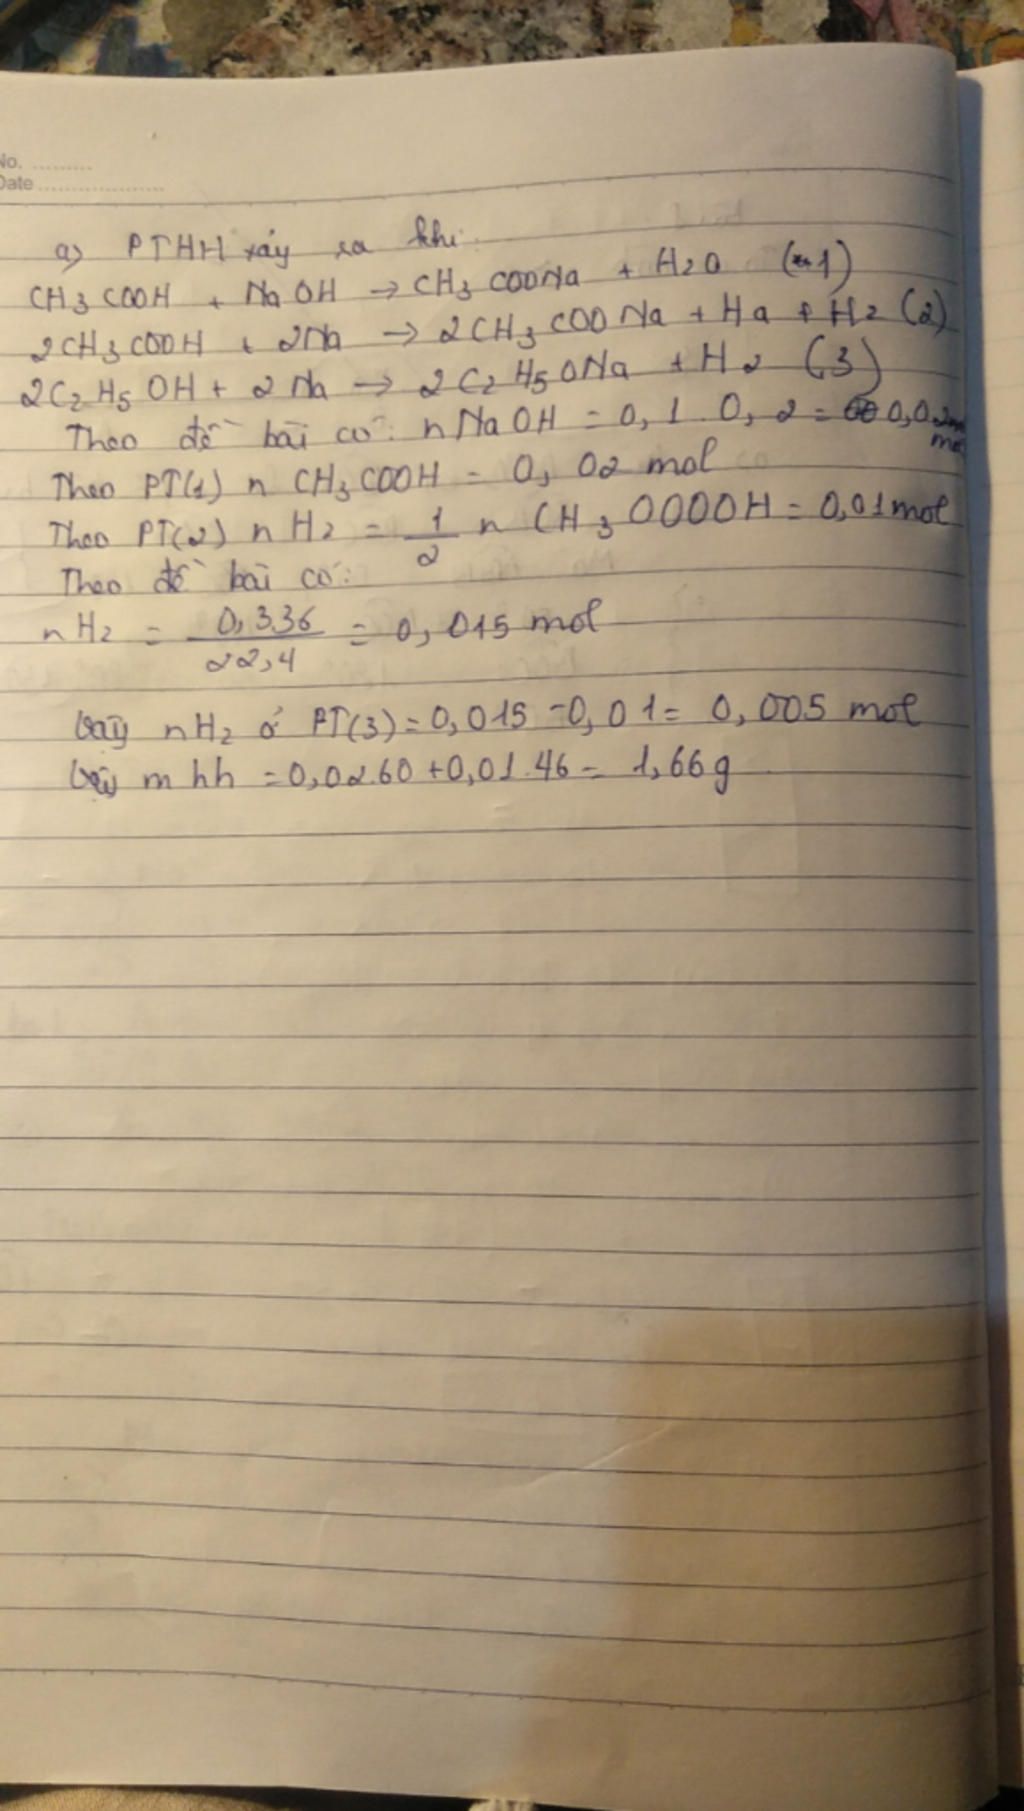 No. ..........
Date ....................
a) PTHH xảy ra khi:
CH3COOH + NaOH → CH3COONa + H2O (1)
2CH3COOH + 2Na → 2CH3COONa + Ha + H2 (2)
2C2H5OH + 2Na → 2C2H5ONa + H2 (3)
Theo đề bài có: nNaOH = 0,1.0,2 = 0,02 mol
Theo PT(1) n CH3COOH = 0,02 mol
Theo PT(2) nH2 = 1/2 n CH3OOOOH = 0,01mol
Theo đề bài có:
nH2 = 0,336/22,4 = 0,015 mol
Vậy nH2 ở PT(3) = 0,015 - 0,01 = 0,005 mol
Vậy m hh = 0,02.60 + 0,01.46 = 1,66g